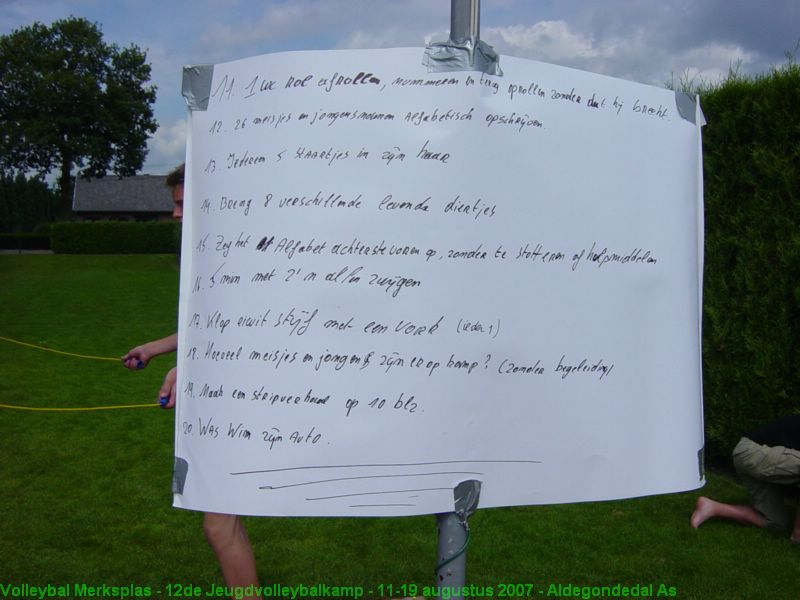 11. 1 wc rol afrollen, nummeren en terug oprollen zonder dat hij breekt.
12. 26 meisjes en jongensnamen Alfabetisch opschrijven
13. Iedereen 5 staartjes in zijn haar
14. Breng 8 verschillende levende diertjes
15. Zeg het Alfabet achterstevoren op, zonder te stotteren of hulpmiddelen
16. 5 min met z'n allen zwijgen
17. Klop eiwit stijf met een vork (ieder 1)
18. Hoeveel meisjes en jongens zijn er op kamp? (zonder begeleiding)
19. Maak een stripverhaal op 10 blz.
20. Was Wim zijn Auto.
Volleybal Merksplas - 12de Jeugdvolleybalkamp - 11-19 augustus 2007 - Aldegondedal As